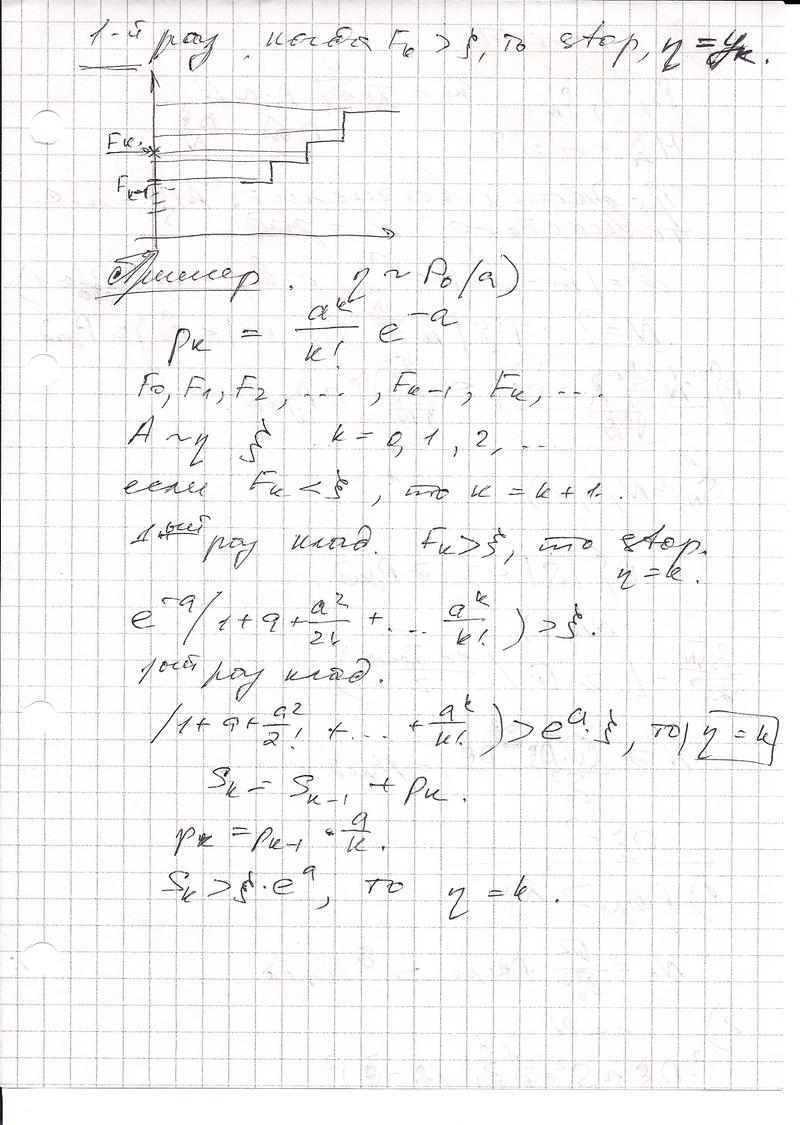 1-й раз, когда Fₖ > ξ, то stop, η = yₖ.
Fₖ
Fₖ₋₁
Пример. η ~ Po(a)
pₖ = aᵏ/k! e⁻ᵃ
F₀, F₁, F₂, ..., Fₖ₋₁, Fₖ, ...
A ~ η ξ k = 0, 1, 2, ...
если Fₖ < ξ, то k = k + 1.
1ый раз когд. Fₖ > ξ, то stop.
η = k.
e⁻ᵃ(1 + a + a²/2! + ... aᵏ/k!) > ξ.
1ый раз когд.
(1 + a + a²/2! + ... + aᵏ/k!) > eᵃ·ξ, то η = k
Sₖ = Sₖ₋₁ + pₖ.
pₖ = pₖ₋₁ · a/k.
Sₖ > ξ·eᵃ, то η = k.